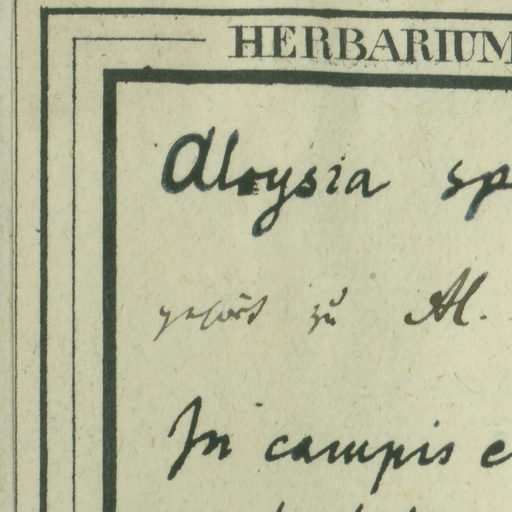 HERBARIUM
Aloysia sp
gehört zu Al.
In campis